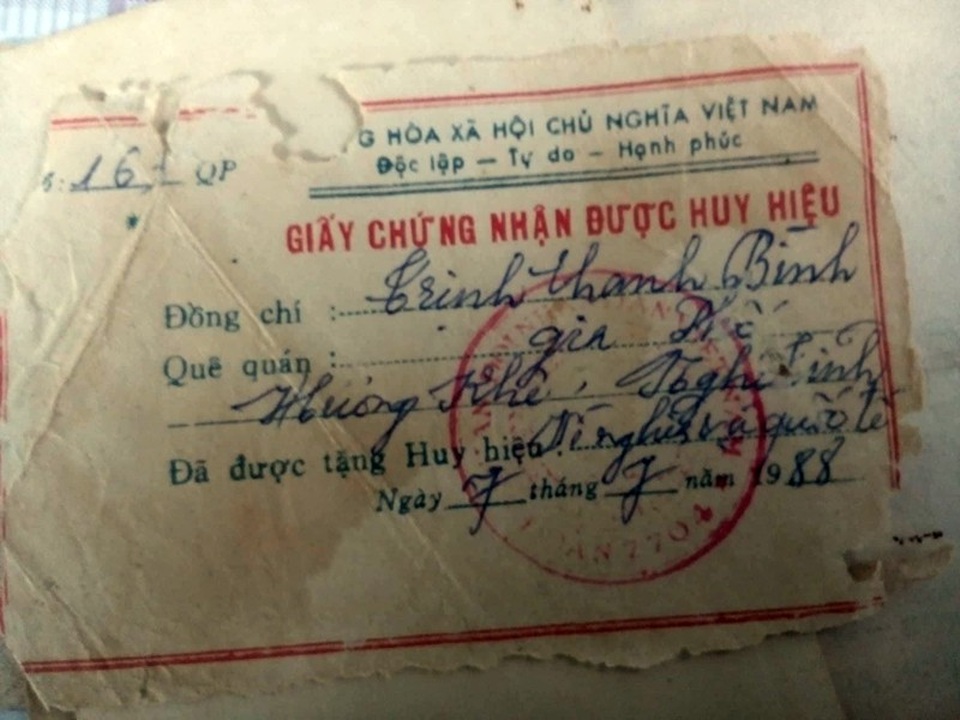 G HÒA XÃ HỘI CHỦ NGHĨA VIỆT NAM
Độc lập — Tự do — Hạnh phúc
: 16 QP
GIẤY CHỨNG NHẬN ĐƯỢC HUY HIỆU
Đồng chí : Trịnh Thanh Bình
Quê quán : gia Phố
Hương Khê, Nghệ Tĩnh
Đã được tặng Huy hiệu : Vì nghĩa vụ quốc tế
Ngày 7 tháng 7 năm 1988
AN 7704